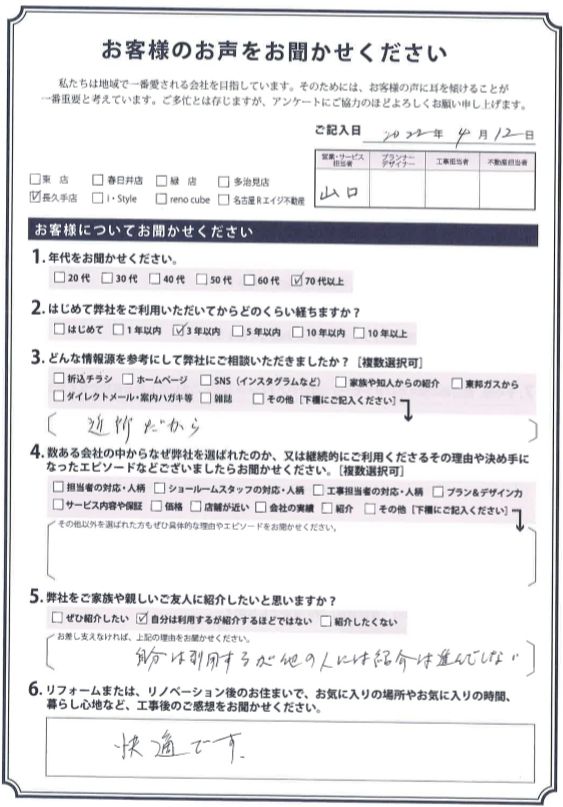 お客様のお声をお聞かせください
私たちは地域で一番愛される会社を目指しています。そのためには、お客様の声に耳を傾けることが
一番重要と考えています。ご多忙とは存じますが、アンケートにご協力のほどよろしくお願い申し上げます。
ご記入日 2022年 4月 12日
営業・サービス担当者 プランナーデザイナー 工事担当者 不動産担当者
山口
□東 店 □春日井店 □緑 店 □多治見店
☑長久手店 □i・Style □reno cube □名古屋Rエイジ不動産
お客様についてお聞かせください
1. 年代をお聞かせください。
□20代 □30代 □40代 □50代 □60代 ☑70代以上
2. はじめて弊社をご利用いただいてからどのくらい経ちますか？
□はじめて □1年以内 ☑3年以内 □5年以内 □10年以内 □10年以上
3. どんな情報源を参考にして弊社にご相談いただきましたか？［複数選択可］
□折込チラシ □ホームページ □SNS（インスタグラムなど） □家族や知人からの紹介 □東邦ガスから
□ダイレクトメール・案内ハガキ等 □雑誌 □その他［下欄にご記入ください］
近所だから
4. 数ある会社の中からなぜ弊社を選ばれたのか、又は継続的にご利用くださるその理由や決め手に
なったエピソードなどございましたらお聞かせください。［複数選択可］
□担当者の対応・人柄 □ショールームスタッフの対応・人柄 □工事担当者の対応・人柄 □プラン&デザイン力
□サービス内容や保証 □価格 □店舗が近い □会社の実績 □紹介 □その他［下欄にご記入ください］
その他以外を選ばれた方もぜひ具体的な理由やエピソードをお聞かせください。
5. 弊社をご家族や親しいご友人に紹介したいと思いますか？
□ぜひ紹介したい ☑自分は利用するが紹介するほどではない □紹介したくない
お差し支えなければ、上記の理由をお聞かせください。
自分は利用するが他の人には紹介は進んでしない
6. リフォームまたは、リノベーション後のお住まいで、お気に入りの場所やお気に入りの時間、
暮らし心地など、工事後のご感想をお聞かせください。
快適です。